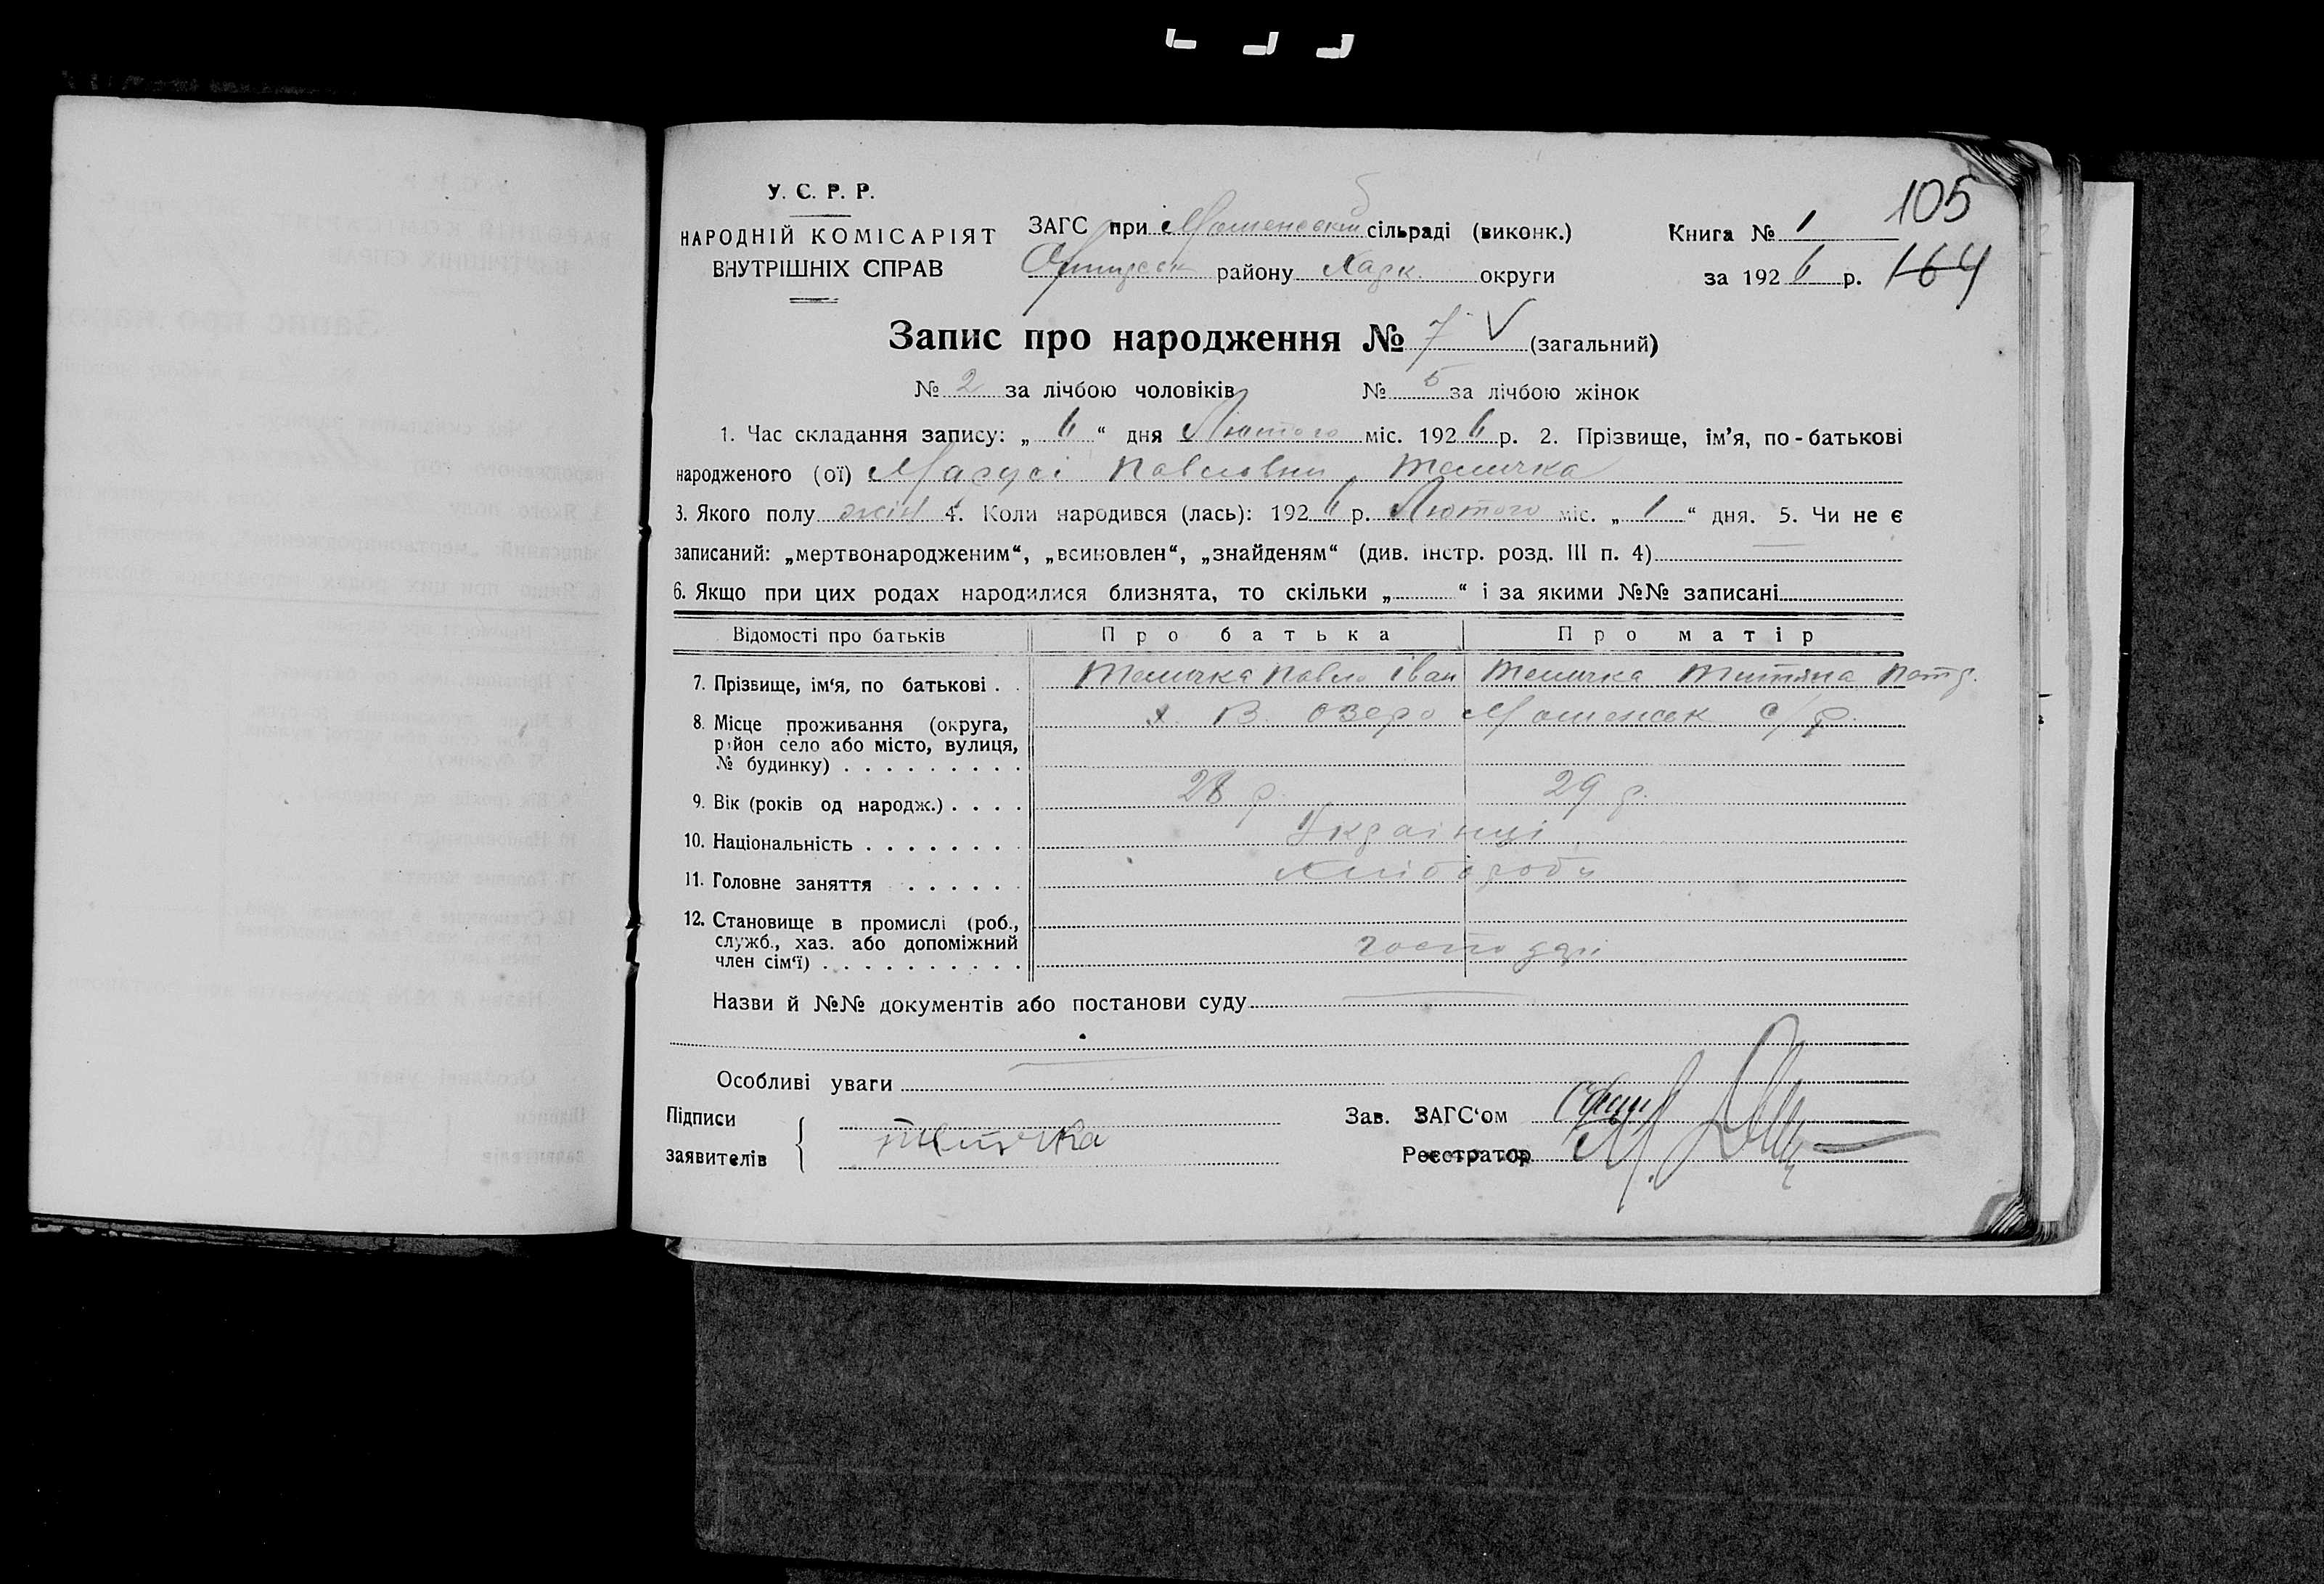 105
У. С. Р. Р.
НАРОДНІЙ КОМІСАРІЯТ
ВНУТРІШНІХ СПРАВ
ЗАГС при сільраді (виконк.)
району Харк. округи
Книга № 1
за 1926 р. 164
Запис про народження № 7 V (загальний)
№ 2 за лічбою чоловіків № 5 за лічбою жінок
1. Час складання запису: „ 6 “ дня Лютого міс. 1926 р. 2. Прізвище, ім’я, по-батькові
народженого (ої) Марусі Павловни
3. Якого полу жін 4. Коли народився (лась): 1926 р. Лютого міс. „ 1 “ дня. 5. Чи не є
записаний: „мертвонародженим“, „всиновлен“, „знайденям“ (див. інстр. розд. III п. 4)
6. Якщо при цих родах народилися близнята, то скільки „ “ і за якими №№ записані
Відомості про батьків Про батька Про матір
7. Прізвище, ім‘я, по батькові . . Павло Іван Петр.
8. Місце проживання (округа, х. В. Озеро с/р.
район село або місто, вулиця,
№ будинку) . . . . . . . . .
9. Вік (років од народж.) . . . . 28 р. 29 р.
10. Національність . . . . . . . Українці
11. Головне заняття . . . . . . Хлібороби
12. Становище в промислі (роб.,
служб., хаз. або допоміжний господарі
член сім‘ї) . . . . . . . . . .
Назви й №№ документів або постанови суду
Особливі уваги
Підписи
заявителів
Зав. ЗАГС‘ом
Реєстратор